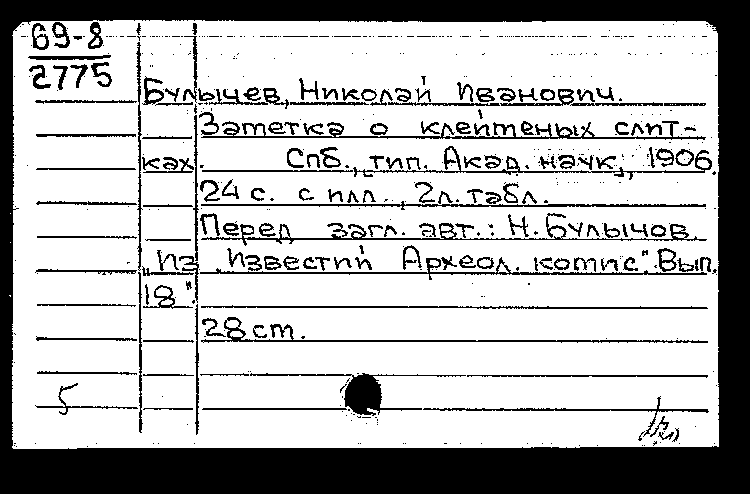 69-8
2775
Булычев, Николай Иванович.
Заметка о клейменых слит-
ках. Спб., тип. Акад. наук, 1906.
24 с. с илл., 2л. табл.
Перед загл. авт.: Н. Булычов.
„Из Известий Археол. комис". Вып.
18".
28 cm.
5